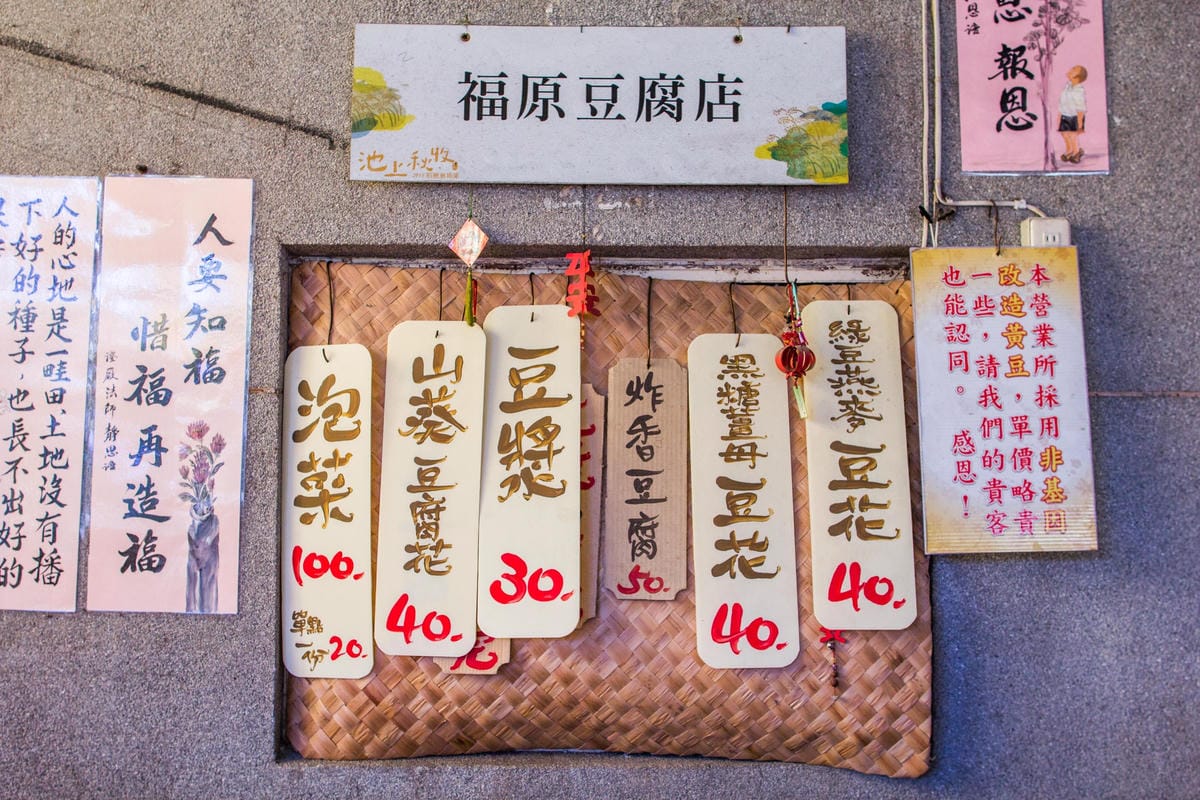 福原豆腐店
池上秋收
報恩
人的心地是一畦田，土地沒有播
下好的種子，也長不出好的
人要知福
惜福再造福
證嚴法師靜思語
泡菜
100.
單點
一份20.
山葵豆腐花
40.
豆漿
30.
炸香豆腐
50.
黑糖薑母豆花
40.
綠豆燕麥豆花
40.
本營業所採用非基因
改造黃豆，單價略貴
一些，請我們的貴客
也能認同。感恩！